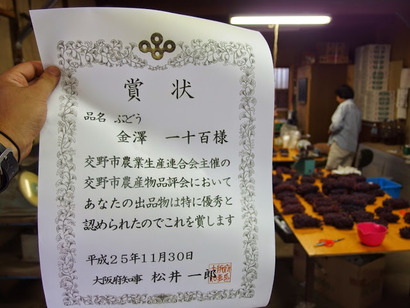 賞状
品名 ぶどう
金澤 一十百様
交野市農業生産連合会主催の
交野市農産物品評会において
あなたの出品物は特に優秀と
認められたのでこれを賞します
平成25年11月30日
大阪府知事 松井一郎